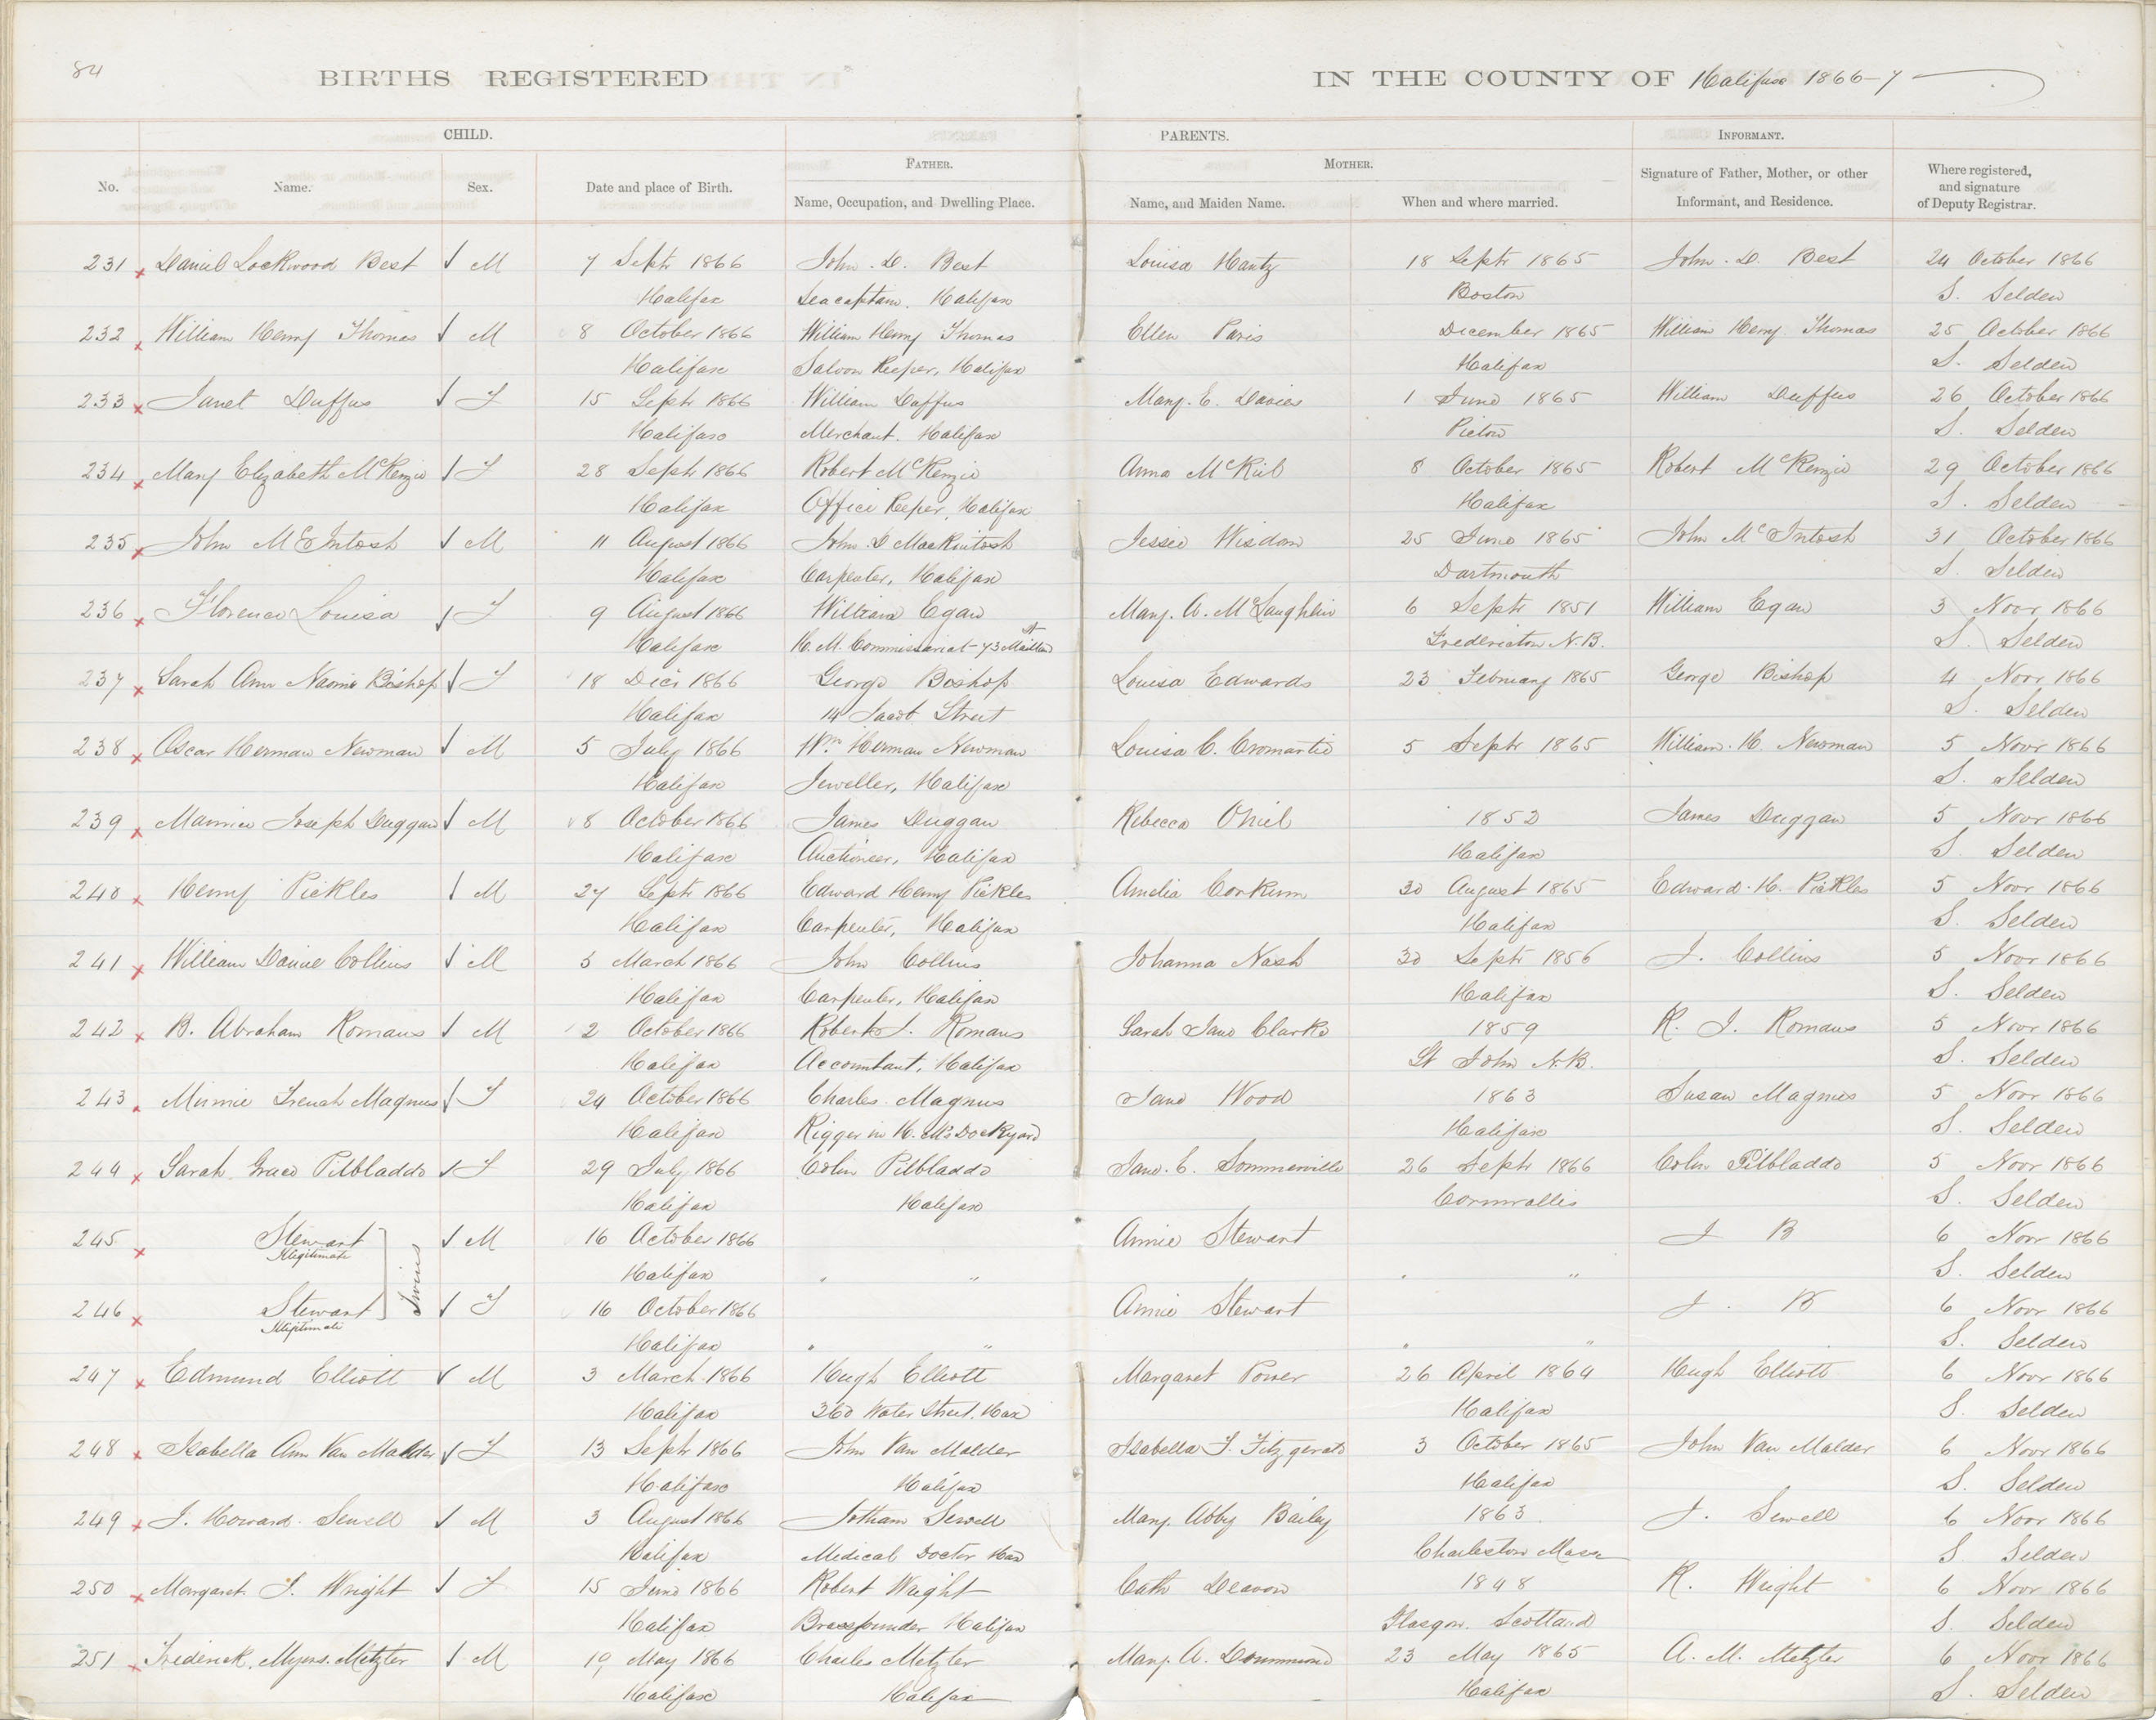 84
BIRTHS REGISTERED IN THE COUNTY OF Halifax 1866-7
CHILD. PARENTS. INFORMANT.
FATHER. MOTHER.
No. Name. Sex. Date and place of Birth. Name, Occupation, and Dwelling Place. Name, and Maiden Name. When and where married. Signature of Father, Mother, or other Informant, and Residence. Where registered, and signature of Deputy Registrar.
231 Daniel Lockwood Best M 7 Septr 1866 John. D. Best Louisa Hantz 18 Septr 1865 John. D. Best 24 October 1866
Halifax Seacaptain. Halifax Boston S. Selden
232 William Henry Thomas M 8 October 1866 William Henry Thomas Ellen Paris December 1865 William Henry Thomas 25 October 1866
Halifax Saloon Keeper, Halifax Halifax S. Selden
233 Janet Duffus F 15 Septr 1866 William Duffus Mary. E. Davies 1 June 1865 William Duffus 26 October 1866
Halifax Merchant. Halifax Pictou S. Selden
234 Mary Elizabeth McKenzie F 28 Septr 1866 Robert McKenzie Anna McKiel 8 October 1865 Robert McKenzie 29 October 1866
Halifax Office Keeper, Halifax Halifax S. Selden
235 John McIntosh M 11 August 1866 John. D MacKintosh Jessie Wisdom 25 June 1865 John McIntosh 31 October 1866
Halifax Carpester, Halifax Dartmouth S. Selden
236 Florence Louisa F 9 August 1866 William Egan Mary. A. McLaughlin 6 Septr 1851 William Egan 3 Novr 1866
Halifax H. M. Commissariat 73 Maitland St Fredericton N.B. S. Selden
237 Sarah Ann Naomi Bishop F 18 Decr 1866 George Bishop Louisa Edwards 23 February 1865 George Bishop 4 Novr 1866
Halifax 14 Jacob Street S. Selden
238 Oscar Herman Newman M 5 July 1866 Wm Herman Newman Louisa C. Cromartie 5 Septr 1865 William. H. Newman 5 Novr 1866
Halifax Jeweller, Halifax S. Selden
239 Maurice Joseph Duggan M 8 October 1866 James Duggan Rebecca Oniel 1852 James Duggan 5 Novr 1866
Halifax Auctioneer, Halifax Halifax S. Selden
240 Henry Pickles M 27 Septr 1866 Edward Henry Pickles Amelia Corkum 30 August 1865 Edward. H. Pickles 5 Novr 1866
Halifax Carpenter, Halifax Halifax S. Selden
241 William Daniel Collins M 5 March 1866 John Collins Johanna Nash 30 Septr 1856 J. Collins 5 Novr 1866
Halifax Carpenter, Halifax Halifax S. Selden
242 B. Abraham Romans M 2 October 1866 Robert J. Romans Sarah Jane Clarke 1859 R. J. Romans 5 Novr 1866
Halifax Accountant, Halifax St John N.B. S. Selden
243 Minnie French Magnus F 24 October 1866 Charles Magnus Jane Wood 1863 Susan Magnus 5 Novr 1866
Halifax Rigger in H. M's Dockyard Halifax S. Selden
244 Sarah Grace Pitbladdo F 29 July 1866 Colin Pitbladdo Jane. E. Sommerville 26 Septr 1866 Colin Pitbladdo 5 Novr 1866
Halifax Halifax Cornwallis S. Selden
245 Stewart Twins M 16 October 1866 Annie Stewart J B 6 Novr 1866
Illegitimate Halifax " " " " S. Selden
246 Stewart F 16 October 1866 Annie Stewart J. B 6 Novr 1866
Illegitimate Halifax " " " " S. Selden
247 Edmund Elliott M 3 March 1866 Hugh Elliott Margaret Power 26 April 1864 Hugh Elliott 6 Novr 1866
Halifax 360 Water Street. Hax Halifax S. Selden
248 Isabella Ann Van Malder F 13 Septr 1866 John Van Malder Isabella F. Fitzgerald 3 October 1865 John Van Malder 6 Novr 1866
Halifax Halifax Halifax S. Selden
249 J. Howard Sewell M 3 August 1866 Jotham Sewell Mary. Abby Bailey 1863 J. Sewell 6 Novr 1866
Halifax Medical Doctor Hax Charleston Mass S. Selden
250 Margaret J. Wright F 15 June 1866 Robert Wright Cath Deavon 1848 R. Wright 6 Novr 1866
Halifax Brassfounder Halifax Glasgow. Scotland S. Selden
251 Frederick. Myers. Metzler M 19 May 1866 Charles Metzler Mary. A. Dommond 23 May 1865 A. M. Metzler 6 Novr 1866
Halifax Halifax Halifax S. Selden